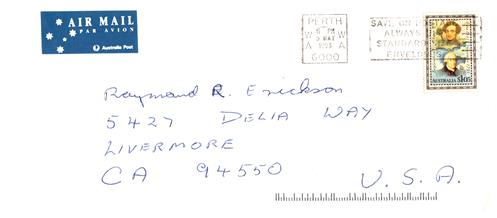 AIR MAIL
PAR AVION
Australia Post
PERTH
6 PM
W W
3 MAY
A 1993 A
6000
SAVE
ALWAYS
STANDARD
ENVELO
AUSTRALIA $1.05
Raymond R. Erickson
5427 DELIA WAY
LIVERMORE
CA 94550
U.S.A.